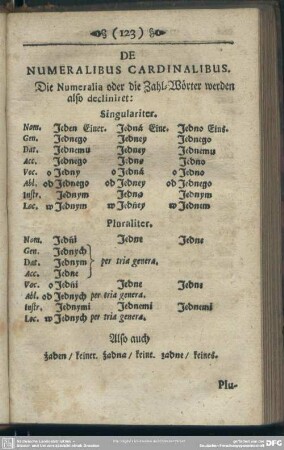 (123)
DE
NUMERALIBUS CARDINALIBUS.
Die Numeralia oder die Zahl-Wörter werden
also decliniret:
Singulariter.
Nom. Jeden Einer. Jedná Eine. Jedno Eins.
Gen. Jednego Jedney Jednego
Dat. Jednemu Jedney Jednemu
Acc. Jednego Jedno
Voc. o Jedny o Jedná o Jedno
Abl. od Jednego od Jedney od Jednego
Instr. Jednym Jedno Jednym
Loc. w Jednym w Jedney w Jednem
Pluraliter.
Nom. Jedńi Jedne Jedne
Gen. Jednych
Dat. Jednym per tria genera.
Acc. Jedne
Voc. o Jedńi Jedne Jedne
Abl. od Jednych per tria genera.
Instr. Jednymi Jednemi Jednemi
Loc. w Jednych per tria genera.
Also auch
żaden / keiner. żadna / keine. żadne / keines.
Plu-
DFG